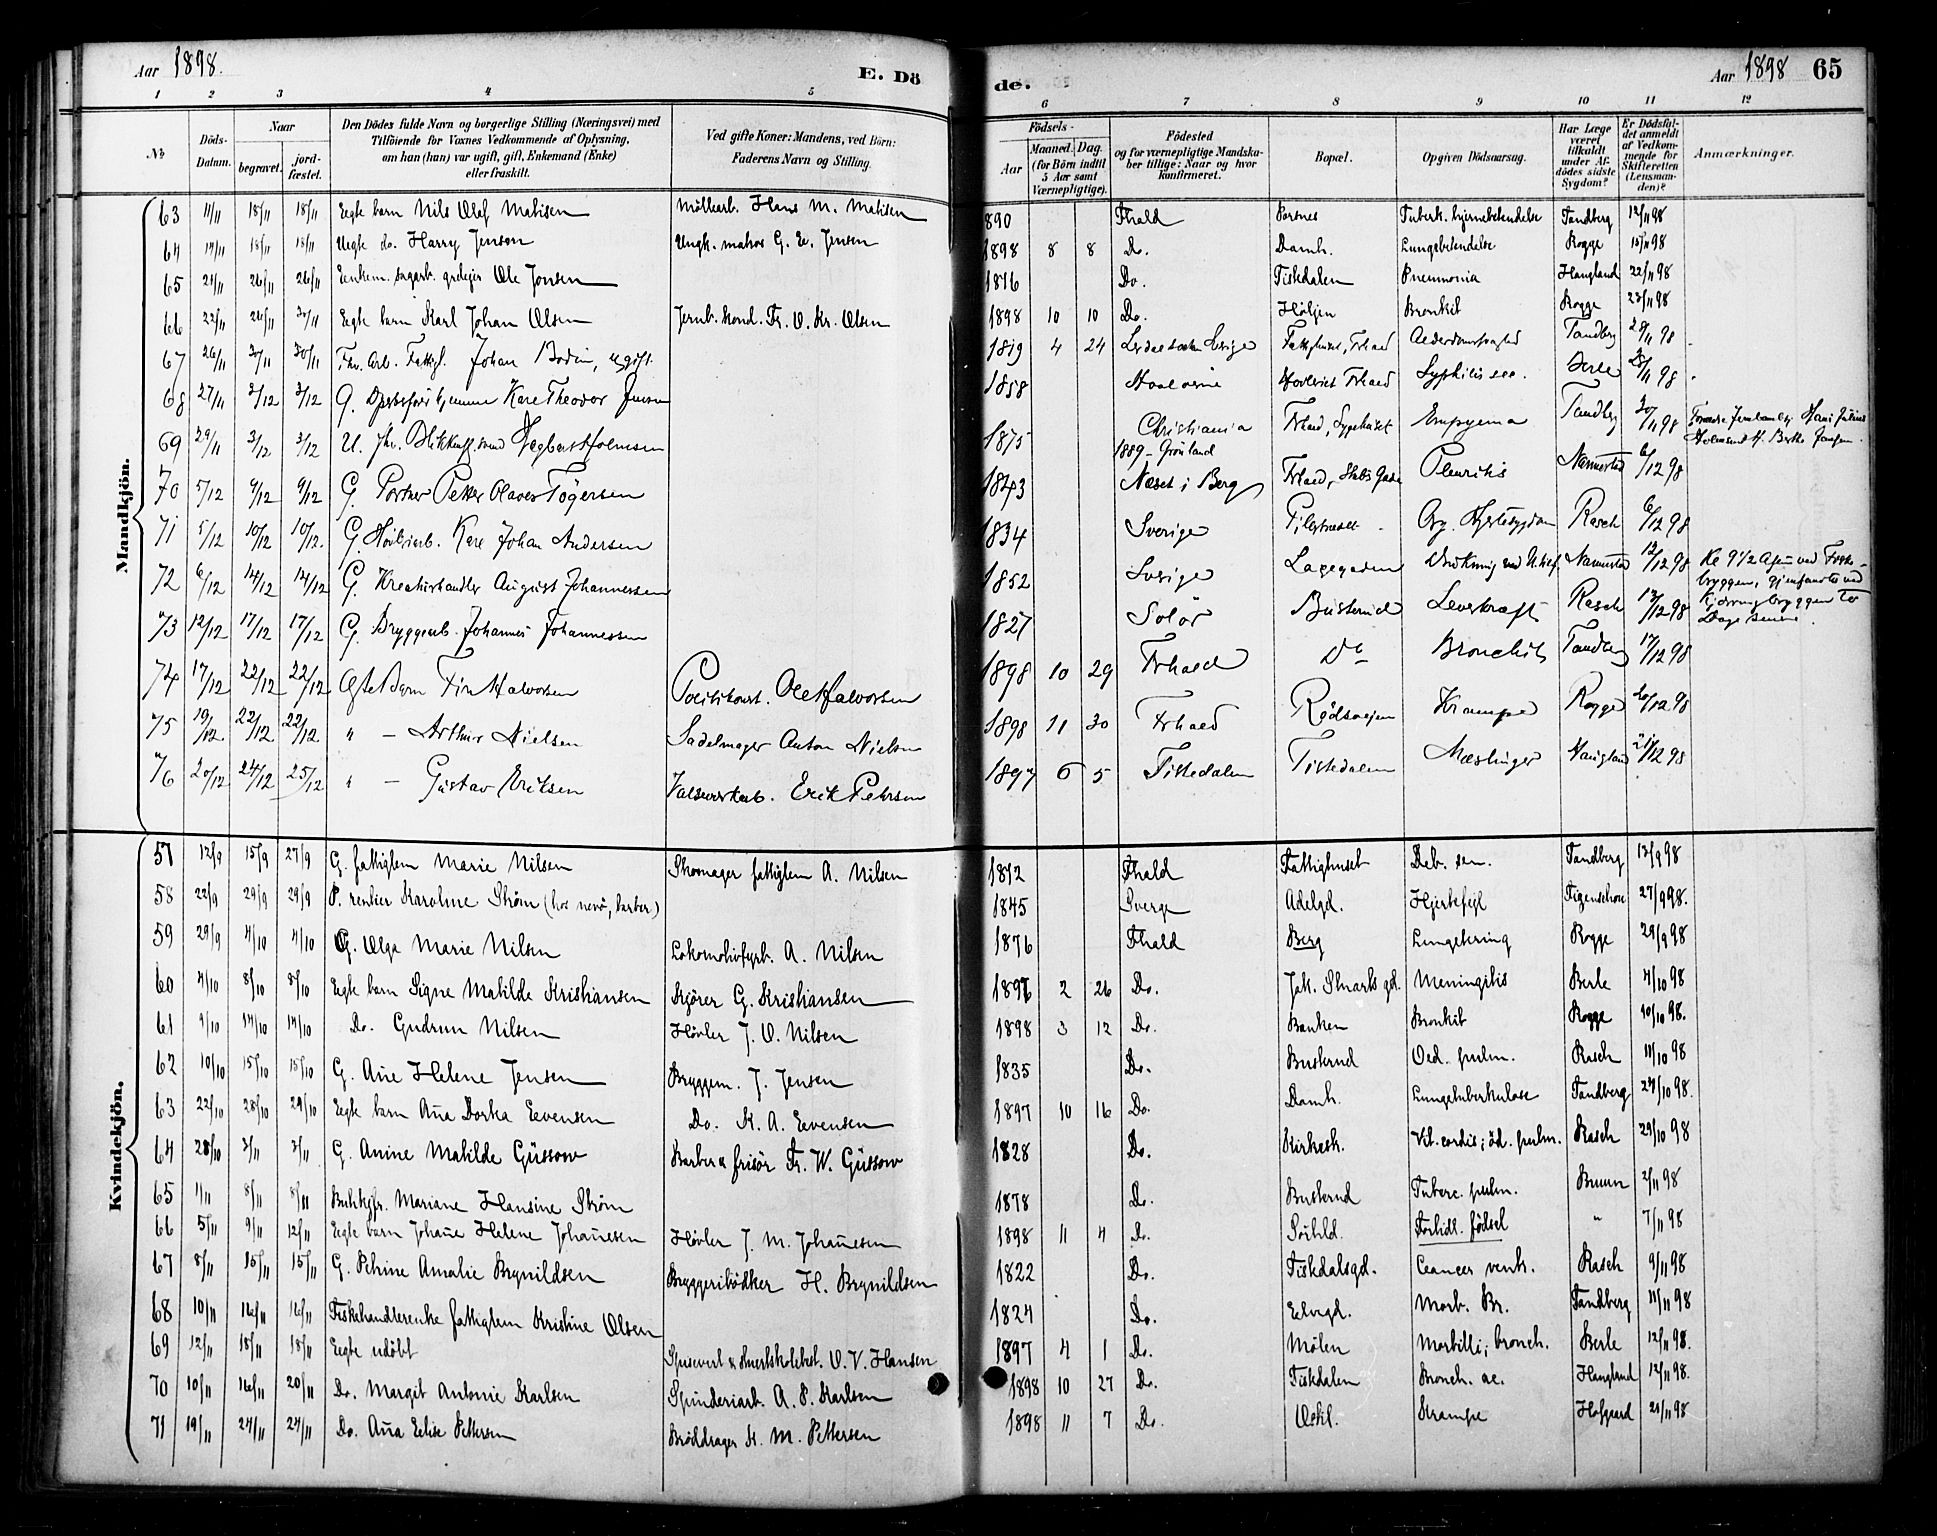 Aar 1898. E. Dö
de. Aar 1898 65
1 2 3 4 5 6 7 8 9 10 11 12
No Döds-Datum. Naar begravet. jordfæstet. Den Dödes fulde Navn og borgerlige Stilling (Næringsvei) med Tilföiende for Voxnes Vedkommende af Oplysning, om han (hun) var ugift, gift, Enkemand (Enke) eller fraskilt. Ved gifte Koner: Mandens, ved Börn: Faderens Navn og Stilling. Födsels- Aar Maaned. Dag. (for Börn indtil 5 Aar samt Værnepligtige). Födested og for værnepligtige Mandskaber tillige: Naar og hvor konfirmeret. Bopæl. Opgiven Dödsaarsag. Har Læge været tilkaldt under Afdödes sidste Sygdom? Er Dödsfaldet anmeldt af Vedkommende for Skifteretten (Lensmanden)? Anmærkninger.
Mandkjön.
63 11/11 18/11 18/11 Ægte barn Nils Olaf Matisen Möllearb. Hans M. Matisen 890 Fhald Tuberk. hjernebetendelse Tandberg 12/11 98
64 14/11 18/11 18/11 Uegte do. Harry Jenson Ungk. matros G. E. Jensen 1898 8 8 Do. Damh. Lungebetendelse Rogge 15/11 98
65 21/11 26/11 26/11 Enkem. sagarb. Ole Jonsen 1816 Do. Tistedalen Pneumonia Haugland 22/11 98
66 22/11 26/11 30/11 Egte barn Karl Johan Olsen Jernb. kond. Fr. O. Kr. Olsen 1898 10 10 Do. Höljen Bronkit Rogge 23/11 98
67 26/11 30/11 30/11 Fhv. Arb. Fattigl. Johan Bodin, ugift. 1819 4 24 Sverige Fattighuset, Frhald Tandberg 28/11 98
68 27/11 3/12 3/12 G. Kare Theodor Jensen 1858 Frhald Syphilis Berle 98
69 29/11 3/12 3/12 U. Holmsen 1875 Christiania 1889 - Grönland Frhald, Sygehuset Empyema Tandberg 30/11 98
70 5/12 9/12 9/12 G. Portner Petter Olaves Tögersen 1843 Næset i Berg Frhald, Gade Pleuritis Nannestad 6/12 98
71 5/12 10/12 10/12. G. Hövleriarb. Kare Johan Andersen 1834 Sverige Org. Hjertesygdom Rasch 6/12 98
72 6/12 14/12 14/12 G. Kreaturhandler August Johannessen 1852 Sverige Lagegaden Drukning Nannestad 12/12 98 Kl 9 1/2 Aften ved
73 12/12 17/12 17/12 G. Bryggearb. Johannes Johannessen 1827 Solör Busterud Leverkræft Rasch 13/12 98 Dage senere.
74 17/12 22/12 22/12 Ægte Barn Fin Halvorsen Politikonst. Ole Halvorsen 1898 10 29 Frhald Do Bronchit Tandberg 17/12 98
75 19/12 22/12 22/12 " - Arthur Nielsen Sadelmager Anton Nielsen 1898 11 30 Frhald Rödsveien Krampe Rogge 20/12 98
76 20/12 24/12 25/12 " - Gustav Eriksen Valseverkarb. Erik Pehrsen 1897 6 5 Tistedalen Tistedalen Mæslinger Haugland 21/12 98
Kvindekjön.
57 12/9 15/9 27/9 G. fattiglem Marie Nilsen Skomager fattiglem A. Nilsen 1812 Fhald Fattighuset Deb. sen. Tandberg 13/9 98
58 22/9 29/9 29/9 P. rentier Karoline Ström (hos nevö, barber.) 1845 Sverge Adelgd. Hjertefejl Figenschou 27/9 98.
59 29/9 4/10 4/10 G. Olga Marie Nilsen Lokomotivfyrb. A. Nilsen 1876 Fhald Berg Lungetering Rogge 29/9 98
60 4/10 8/10 8/10 Egte barn Signe Matilde Kristiansen Skjörer G. Kristiansen 1896 2 26 Do. Jak. Stuarts gd. Meningitis Berle 4/10 98
61 9/10 14/10 14/10 Do. Gudrun Nilsen Hövler J. O. Nilsen 1898 3 12 Do. Banken Bronkit Rogge 10/10 98.
62 10/10 15/10 15/10 G. Ane Helene Jensen Bryggem. J. Jensen 1835 Do. Busterud Oed. pulm. Rasch 11/10 98
63 22/10 28/10 29/10 Egte barn Ana Dorka Evensen Do. K. A. Evensen 1897 10 16 Do. Damh. Lungetuberkulose Tandberg 24/10 98.
64 28/10 3/11 3/11 G. Anine Matilde Güssow Barber & frisör Fr. W. Güssow 1828 Do. Kirkesk. Vit. cordis; öd. pulm. Rasch 29/10 98
65 1/11 8/11 8/11 Butikjfr. Mariane Hansine Ström 1878 Do. Busterud Tuberc. pulm. Bruun 2/11 98
66 5/11 9/11 12/11 Egte barn Johane Helene Johanesen Hövler J. M. Johanesen 1898 11 4 Do. Sörhld. Fortidl. födsel " 7/11 98
67 8/11 15/11 15/11 G. Petrine Amalie Brynildsen Bryggeribödker H. Brynildsen 1822 Do. Tistedalsgd. Cancer ventr. Rasch 9/11 98
68 10/11 16/11 16/11 Fiskehandlerenke fattiglem Kristine Olsen 1824 Do. Elvegd. Morb. Br. Tandberg 11/11 98
69 12/11 18/11 18/11 Egte udöbt O. V. Hansen 1897 4 1 Do. Mölen Morbilli; bronch. Berle 12/11 98.
70 10/11 16/11 20/11 Do. Margit Antonie Karlsen Spinderiarb. A. P. Karlsen 1898 10 27 Do. Tistdalen Bronch. ac. Haugland 12/11 98.
71 19/11 24/11 24/11 Do. Ana Elise Pettersen Bröddrager K. M. Pettersen 1898 11 7 Do. Krampe Hofgaard 21/11 98